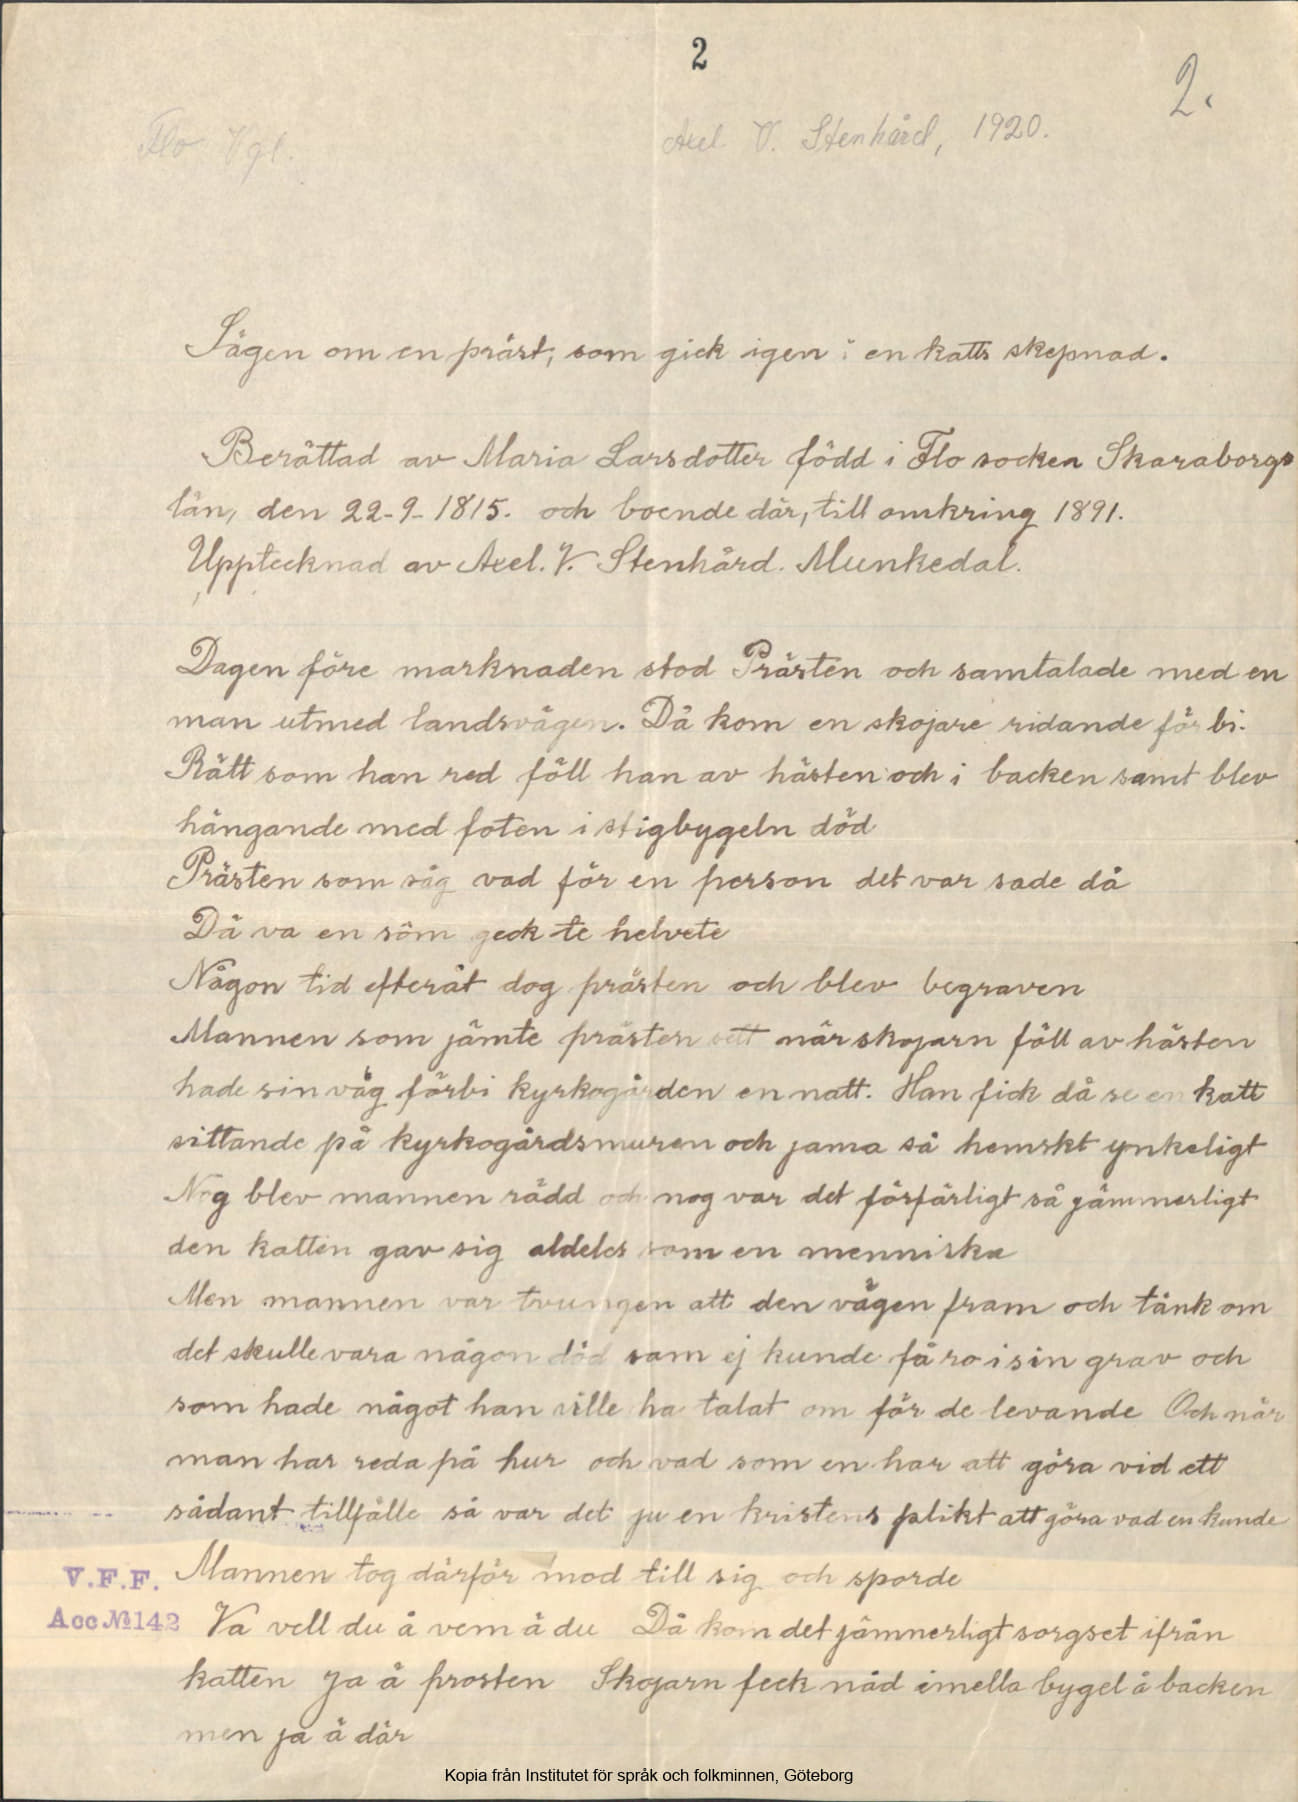 2
2.
Flo Vgl.
Axel V. Stenhård, 1920.
Sägen om en präst, som gick igen i en katts skepnad.
Berättad av Maria Larsdotter född i Flo socken Skaraborgs
län, den 22-9-1815. och boende där, till omkring 1891.
Upptecknad av Axel. V. Stenhård. Munkedal.
Dagen före marknaden stod Prästen och samtalade med en
man utmed landsvägen. Då kom en skojare ridande förbi.
Rätt som han red föll han av hästen och i backen samt blev
hängande med foten i stigbygeln död
Prästen som såg vad för en person det var sade då
Dä va en söm geck te helvete
Någon tid efteråt dog prästen och blev begraven
Mannen som jämte prästen sett när skojarn föll av hästen
hade sin väg förbi kyrkogården en natt. Han fick då se en katt
sittande på kyrkogårdsmuren och jama så hemskt ynkeligt
Nog blev mannen rädd och nog var det förfärligt så jämmerligt
den katten gav sig aldeles som en menniska
Men mannen var tvungen att den vägen fram och tänk om
det skulle vara någon död som ej kunde få ro i sin grav och
som hade något han ville ha talat om för de levande Och när
man har reda på hur och vad som en har att göra vid ett
sådant tillfälle så var det ju en kristens plikt att göra vad en kunde
Mannen tog därför mod till sig och sporde
V.F.F.
Acc № 142
Va vell du å vem ä du Då kom det jämnerligt sorgset ifrån
katten Ja ä prosten Skojarn feck nåd imella bygel å backen
men ja ä där
Kopia från Institutet för språk och folkminnen, Göteborg